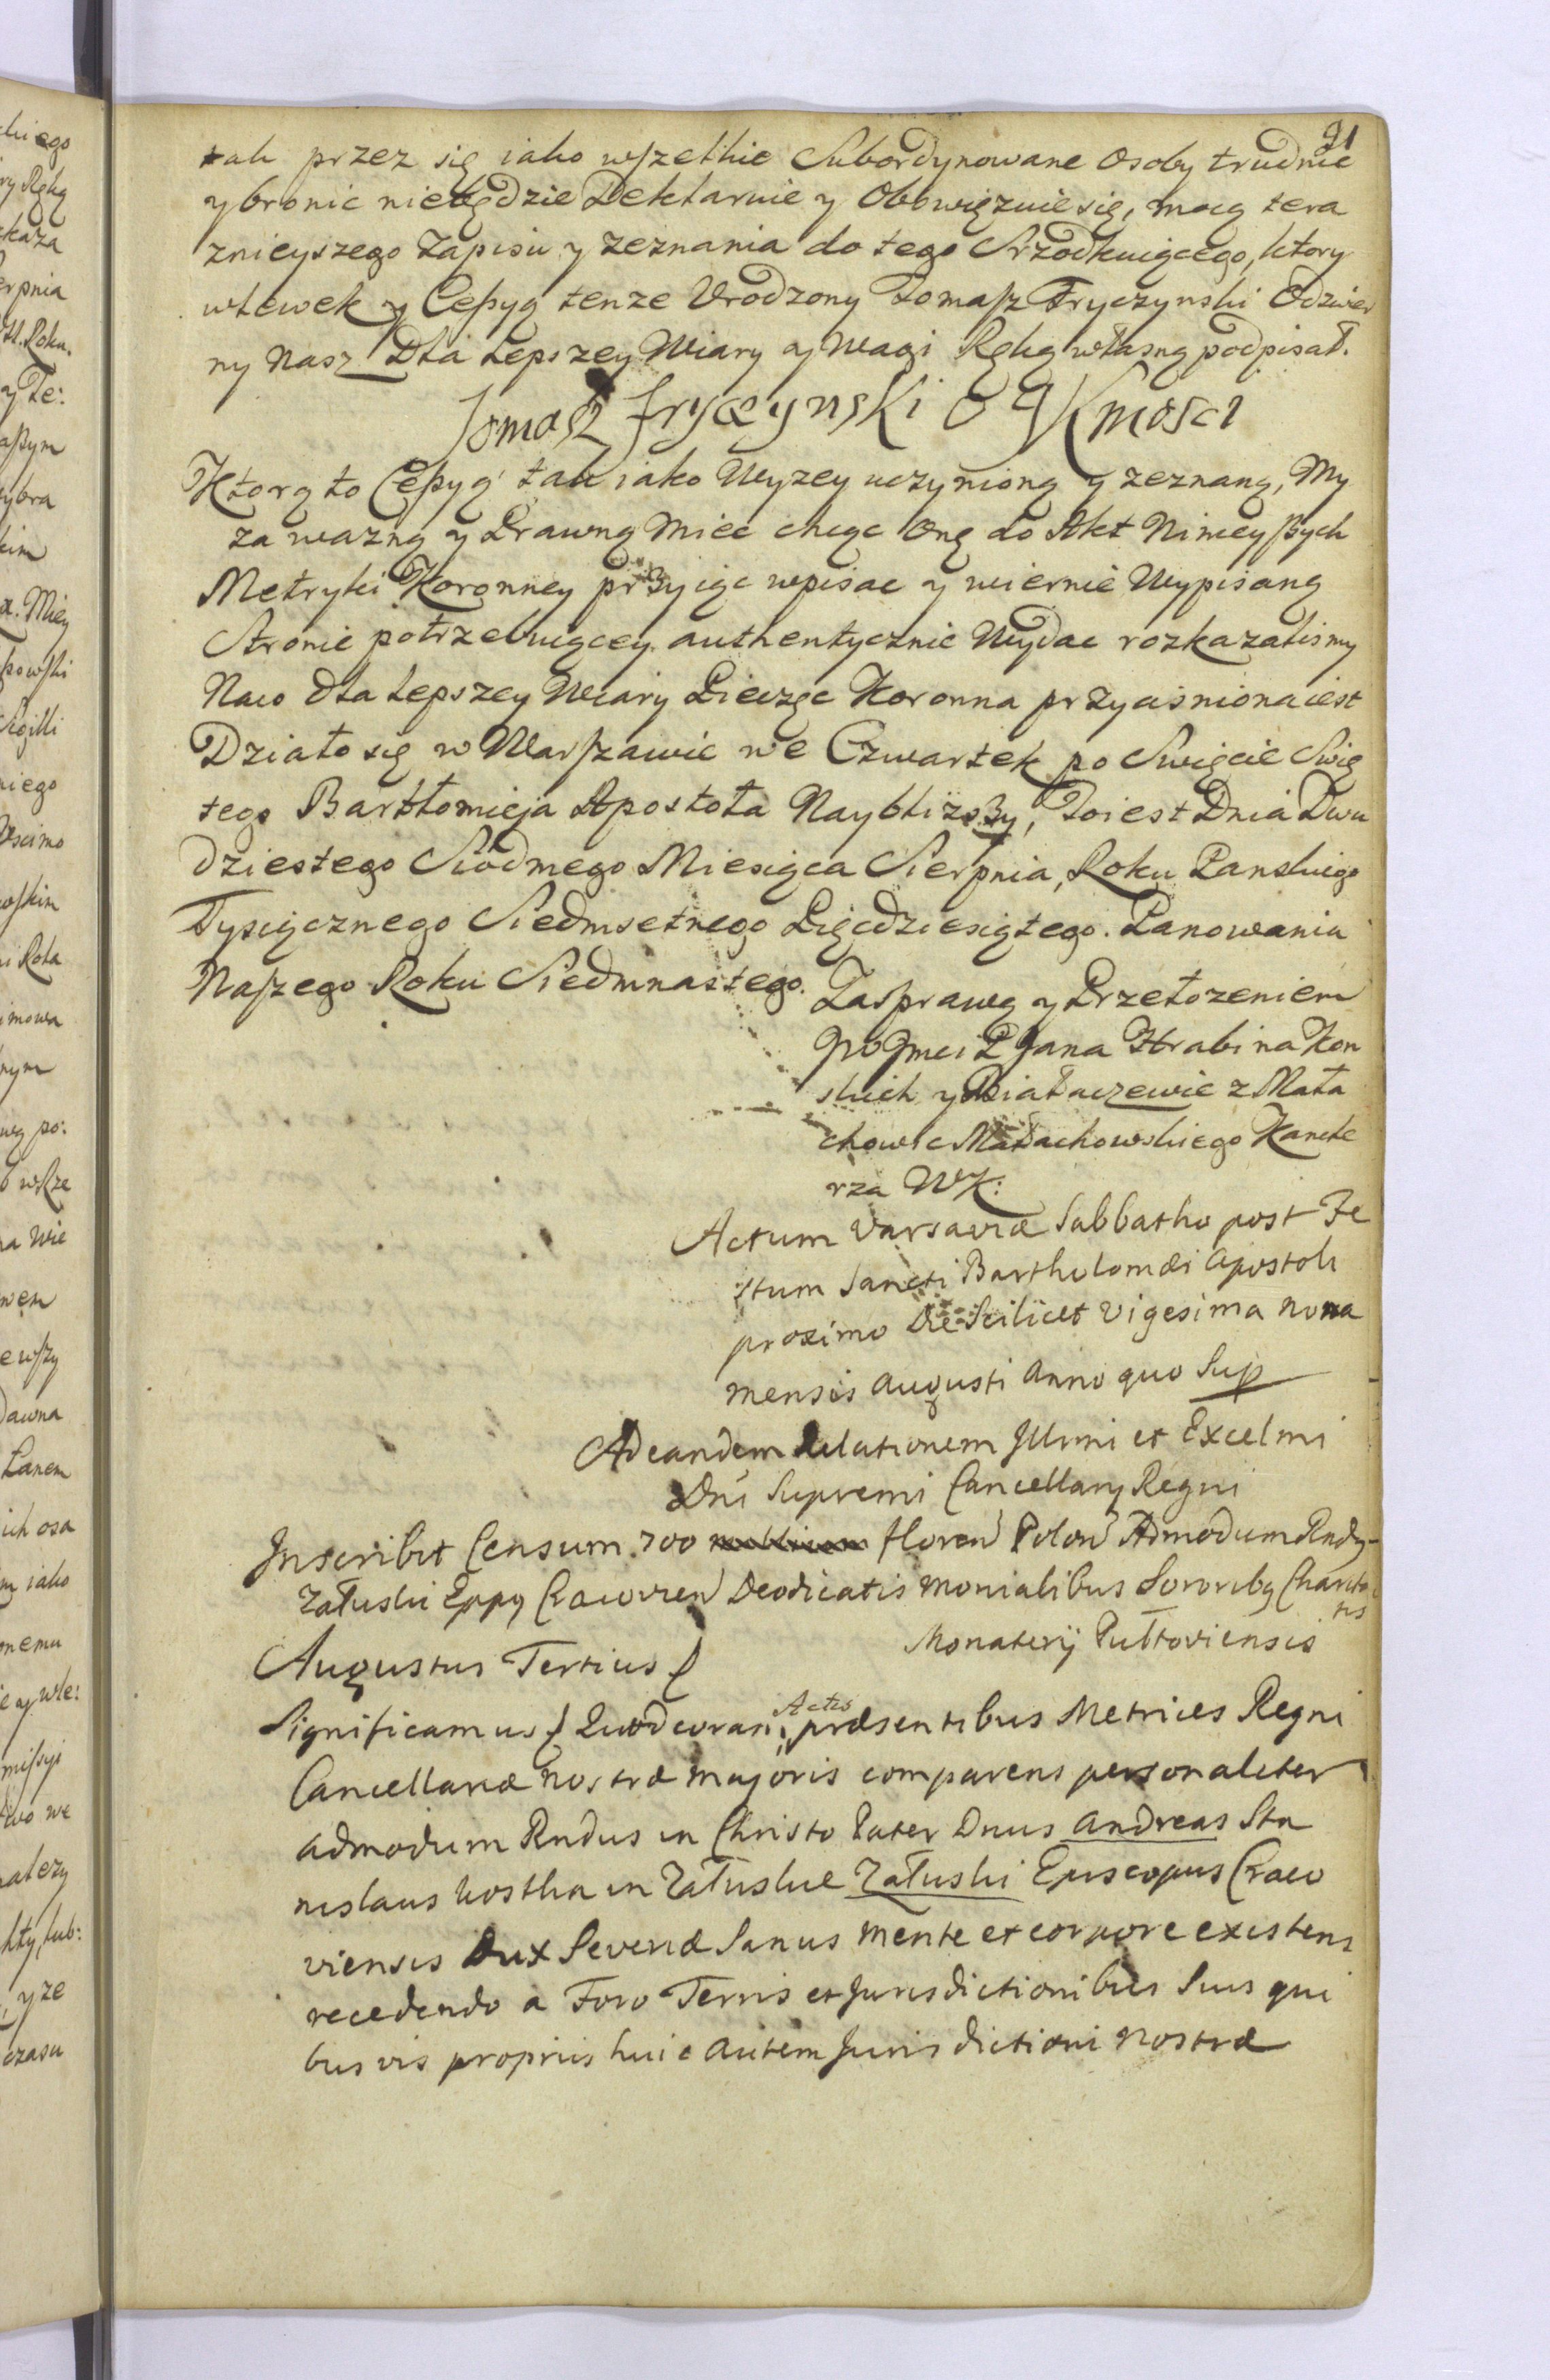 91
tak przez się iako wszelkie Subordynowane Osoby trudnic
y bronic niebędzie Deklaruie y Obowięzuie się, mocą tera
znieyszego Zapisu y zeznania do tego Srzodkuiącego, ktory
wlewek y Cessyą tenze Urodzony Tomasz Fryczynski Odzwier
ny Nasz Dla Lepszey Wiary y Wagi Ręką własną podpisał.
Tomasz Fryczynski O J K Mosci
Ktorą to Cessyą tak iako Wyzey uczynioną y zeznaną, My
za wazną y Prawną Miec chcąc Onę do Akt Ninieyszych
Metryki Koronney przyiąc wpisac y wiernie Wypisaną
Stronie potrzebuiącey authentycznie Wydac rozkazalismy
Naco dla Lepszey Wiary Pieczęc Koronna przycisniona iest
Działo się w Warszawie we Czwartek po Swięcie Swię
tego Bartłomieja Apostoła Nayblizszy, To iest Dnia Dwu
dziestego Siodmego Miesiąca Sierpnia, Roku Panskiego
Tysiącznego Siedmsetnego Pięcdziesiątego. Panowania
Naszego Roku Siedmnastego.
Za sprawą y Przełozeniem
JW Jmci P Jana Hrabi na Kon
skich y Białaczewie z Mała
chowic Małachowskiego Kancle
rza WK:
Actum Varsaviæ Sabbatho post Fe
stum Sancti Bartholomæi Apostoli
proximo Die Scilicet Vigesima nona
mensis Augusti Anno quo Sup
Ad eandem Relationem Illmi et Excelmi
Dni Supremi Cancellarij Regni
Inscribit Censum 700 floren Polon Admodum Rndus
Załuski Eppus Cracovien Deodicatis Monialibus Sororibus Charita
tis
Monaterij Pultoviensis
Augustus Tertius
Significamus Quod coram Actis præsentibus Metrices Regni
Cancellariæ nostræ majoris comparens personaliter
admodum Rndus in Christo Pater Dnus Andreas Sta
nislaus Kostka in Załuskie Załuski Episcopus Craco
viensis Dux Severiæ Sanus mente et corpore existens
recedendo a Foro Terris et Jurisdictionibus Suis qui
bus vis propriis huic autem Jurisdictioni nostræ